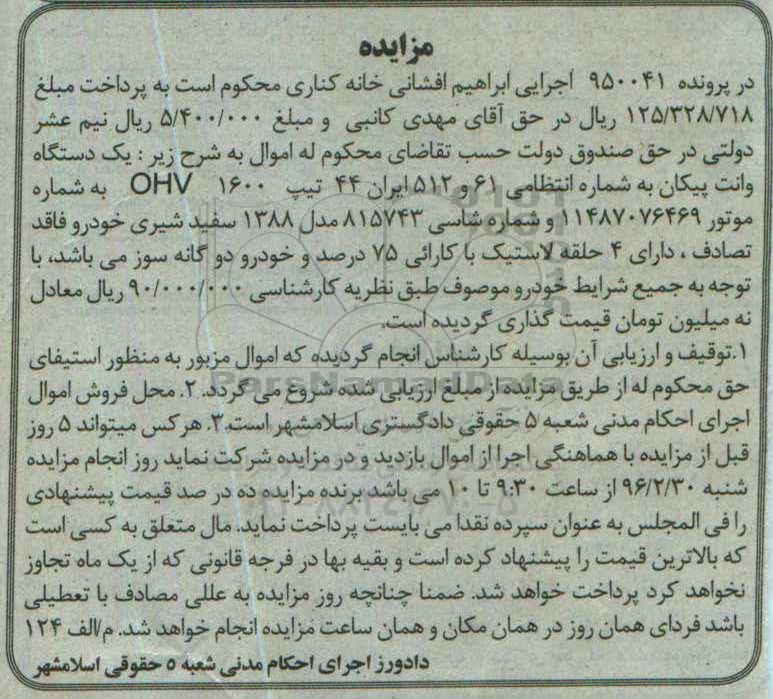 مزایده
در پرونده ۹۵۰۰۴۱ اجرایی ابراهیم افشانی خانه کناری محکوم است به پرداخت مبلغ
۱۲۵/۳۲۸/۷۱۸ ریال در حق آقای مهدی کاتبی و مبلغ ۵/۴۰۰/۰۰۰ ریال نیم عشر
دولتی در حق صندوق دولت حسب تقاضای محکوم له اموال به شرح زیر : یک دستگاه
وانت پیکان به شماره انتظامی ۶۱ و ۵۱۲ ایران ۴۴ تیپ ۱۶۰۰ OHV به شماره
موتور ۱۱۴۸۷۰۷۶۴۶۹ و شماره شاسی ۸۱۵۷۴۳ مدل ۱۳۸۸ سفید شیری خودرو فاقد
تصادف ، دارای ۴ حلقه لاستیک با کارائی ۷۵ درصد و خودرو دو گانه سوز می باشد، با
توجه به جمیع شرایط خودرو موصوف طبق نظریه کارشناسی ۹۰/۰۰۰/۰۰۰ ریال معادل
نه میلیون تومان قیمت گذاری گردیده است.
۱.توقیف و ارزیابی آن بوسیله کارشناس انجام گردیده که اموال مزبور به منظور استیفای
حق محکوم له از طریق مزایده از مبلغ ارزیابی شده شروع می گردد. ۲. محل فروش اموال
اجرای احکام مدنی شعبه ۵ حقوقی دادگستری اسلامشهر است.۳. هر کس میتواند ۵ روز
قبل از مزایده با هماهنگی اجرا از اموال بازدید و در مزایده شرکت نماید روز انجام مزایده
شنبه ۹۶/۲/۳۰ از ساعت ۹:۳۰ تا ۱۰ می باشد برنده مزایده ده در صد قیمت پیشنهادی
را فی المجلس به عنوان سپرده نقدا می بایست پرداخت نماید. مال متعلق به کسی است
که بالاترین قیمت را پیشنهاد کرده است و بقیه بها در فرجه قانونی که از یک ماه تجاوز
نخواهد کرد پرداخت خواهد شد. ضمنا چنانچه روز مزایده به عللی مصادف با تعطیلی
باشد فردای همان روز در همان مکان و همان ساعت مزایده انجام خواهد شد. م/الف ۱۲۴
دادورز اجرای احکام مدنی شعبه ۵ حقوقی اسلامشهر
ParsNamadData